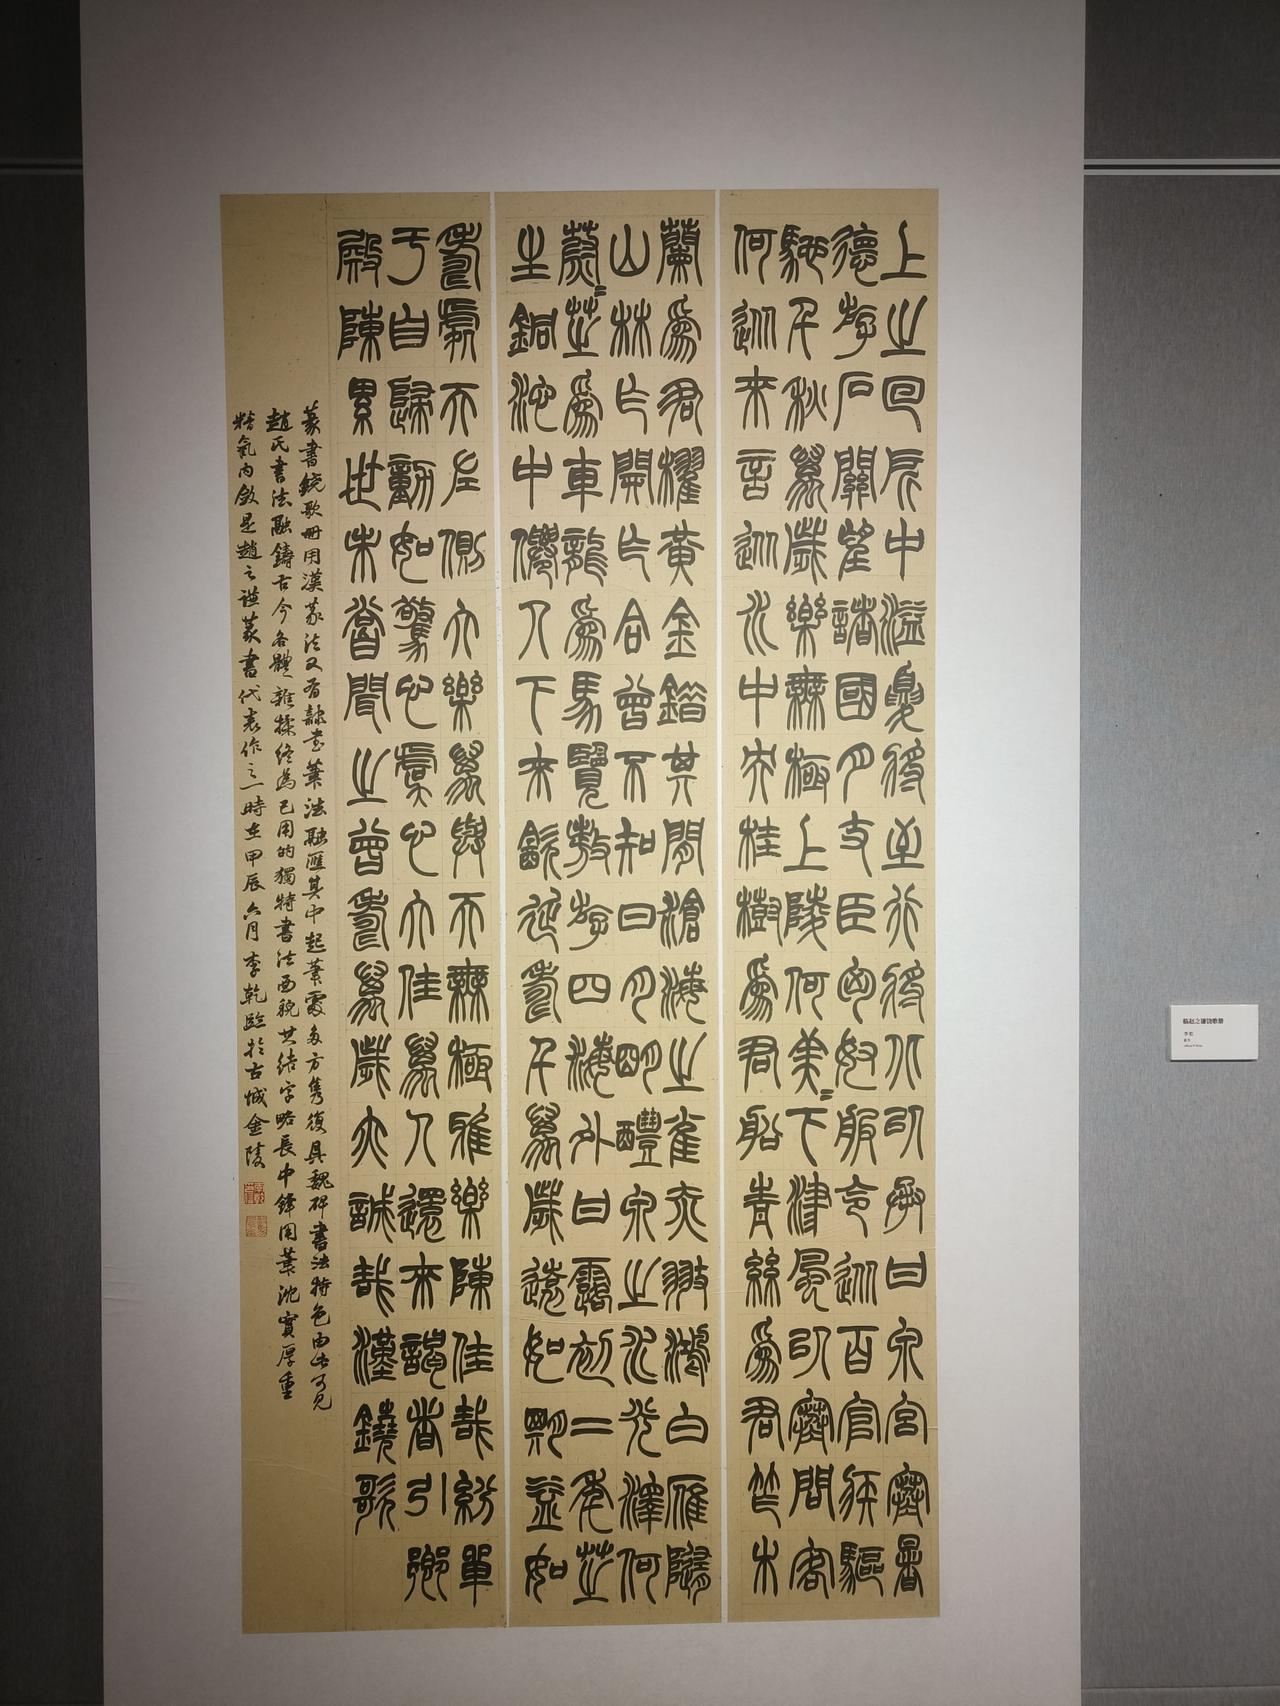 上之回所中溢夏將至行將北以承甘泉宮寒暑
德游石關望諸國月支臣匈奴服令從百官疾驅
馳千秋萬歲樂無極上陵何美=下津風以寒問客
何從來言從水中央桂樹為君船青絲為君笮木
蘭為君櫂黃金錯其間滄海之雀赤翅鴻白雁隨
山林乍開乍合曾不知日月明醴泉之水光澤何
蔚=芝為車龍為馬覽敖游四海外甘露初二年芝
生銅池中僊人下來飲延壽千萬歲遠如期益如
壽處天左側大樂萬與天無極雅樂陳佳哉紛單
于自歸動如驚心虞心大佳萬人還來謁者引鄉
殿陳累世未嘗聞之曾壽萬歲亦誠哉漢鐃歌
篆書鐃歌冊用漢篆法又有隸書筆法融匯其中起筆處多方雋復具魏碑書法特色由此可見
趙氏書法融鑄古今各體雜揉終為己用的獨特書法面貌其結字略長中鋒用筆沈實厚重
精氣內斂是趙之謙篆書代表作之一時在甲辰六月李乾臨於古城金陵
临赵之谦铙歌册
李乾